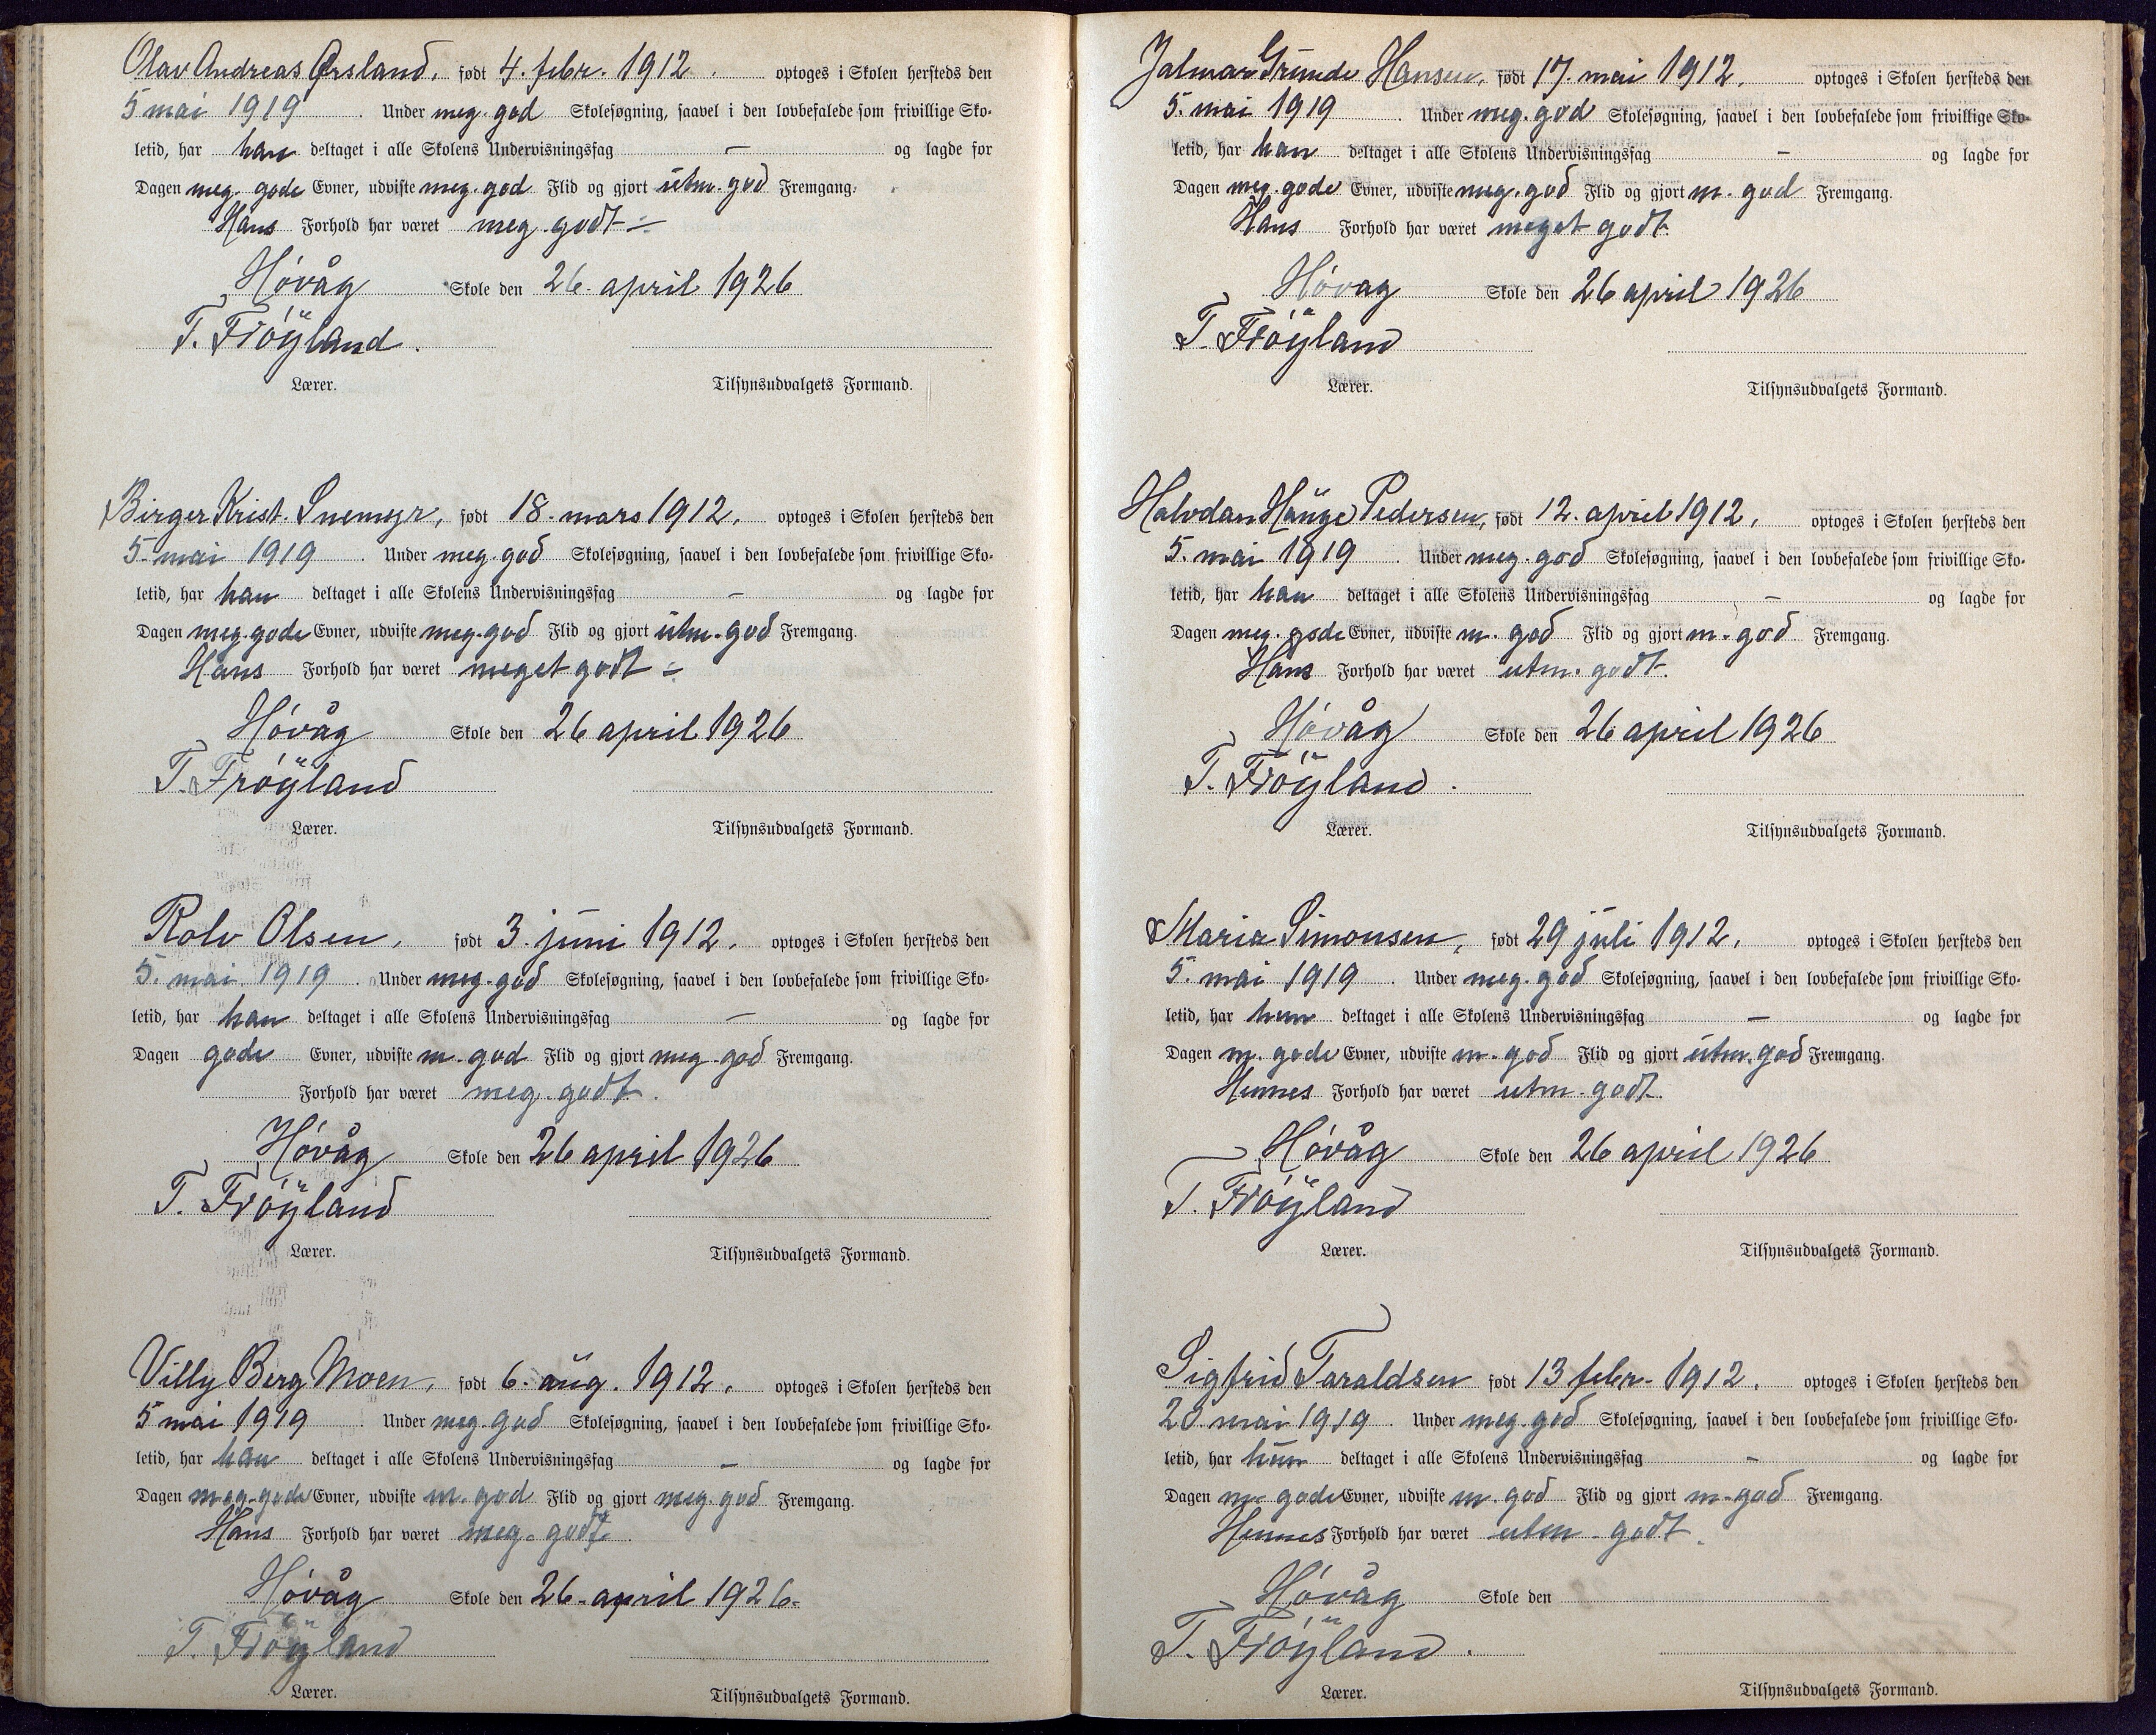 Olav Andreas Ørsland, født 4. febr. 1912. optoges i Skolen hersteds den
5 mai 1919. Under meg. god Skolesøgning, saavel i den lovbefalede som frivillige Sko-
letid, har han deltaget i alle Skolens Undervisningsfag – og lagde for
Dagen meg. gode Evner, udviste meg. god Flid og gjort utm. god Fremgang.
Hans Forhold har været meg. godt –
Høvåg Skole den 26. april 1926
T. Frøyland.
Lærer. Tilsynsudvalgets Formand.
Birger Krist. Snemyr, født 18. mars 1912, optoges i Skolen hersteds den
5. mai 1919. Under meg. god Skolesøgning, saavel i den lovbefalede som frivillige Sko-
letid, har han deltaget i alle Skolens Undervisningsfag – og lagde for
Dagen meg. gode Evner, udviste meg. god Flid og gjort utm. god Fremgang.
Hans Forhold har været meget godt –
Høvåg Skole den 26 april 1926
T. Frøyland
Lærer. Tilsynsudvalgets Formand.
Rolv Olsen, født 3. juni 1912. optoges i Skolen hersteds den
5. mai 1919. Under meg. god Skolesøgning, saavel i den lovbefalede som frivillige Sko-
letid, har han deltaget i alle Skolens Undervisningsfag – og lagde for
Dagen gode Evner, udviste m. god Flid og gjort meg. god Fremgang.
Forhold har været meg. godt.
Høvåg Skole den 26 april 1926
T. Frøyland
Lærer. Tilsynsudvalgets Formand.
Villy Berg Moen, født 6. aug. 1912. optoges i Skolen hersteds den
5 mai 1919. Under meg. god Skolesøgning, saavel i den lovbefalede som frivillige Sko-
letid, har han deltaget i alle Skolens Undervisningsfag – og lagde for
Dagen meg. gode Evner, udviste m. god Flid og gjort meg. god Fremgang.
Hans Forhold har været meg. godt.
Høvåg Skole den 26. april 1926.
T. Frøyland
Lærer. Tilsynsudvalgets Formand.
Jalmar Grunde Hansen, født 17. mai 1912. optoges i Skolen hersteds den
5. mai 1919. Under meg. god Skolesøgning, saavel i den lovbefalede som frivillige Sko-
letid, har han deltaget i alle Skolens Undervisningsfag – og lagde for
Dagen meg. gode Evner, udviste meg. god Flid og gjort m. god Fremgang.
Hans Forhold har været meget godt.
Høvag Skole den 26 april 1926
T. Frøyland
Lærer. Tilsynsudvalgets Formand.
Halvdan Pedersen, født 12. april 1912, optoges i Skolen hersteds den
5. mai 1919. Under meg. god Skolesøgning, saavel i den lovbefalede som frivillige Sko-
letid, har han deltaget i alle Skolens Undervisningsfag – og lagde for
Dagen meg. gode Evner, udviste m. god Flid og gjort m. god Fremgang.
Hans Forhold har været utm. godt.
Høvåg Skole den 26 april 1926
T. Frøyland.
Lærer. Tilsynsudvalgets Formand.
Maria Simonsen, født 29 juli 1912. optoges i Skolen hersteds den
5. mai 1919. Under meg. god Skolesøgning, saavel i den lovbefalede som frivillige Sko-
letid, har hun deltaget i alle Skolens Undervisningsfag – og lagde for
Dagen m. gode Evner, udviste m. god Flid og gjort utm. god Fremgang.
Hennes Forhold har været utm. godt.
Høvåg Skole den 26 april 1926
T. Frøyland
Lærer. Tilsynsudvalgets Formand.
Sigfrid Taraldsen født 13 febr. 1912. optoges i Skolen hersteds den
20 mai 1919. Under meg. god Skolesøgning, saavel i den lovbefalede som frivillige Sko-
letid, har hun deltaget i alle Skolens Undervisningsfag – og lagde for
Dagen m. gode Evner, udviste m. god Flid og gjort m. god Fremgang.
Hennes Forhold har været utm. godt.
Høvåg Skole den
T. Frøyland.
Lærer. Tilsynsudvalgets Formand.